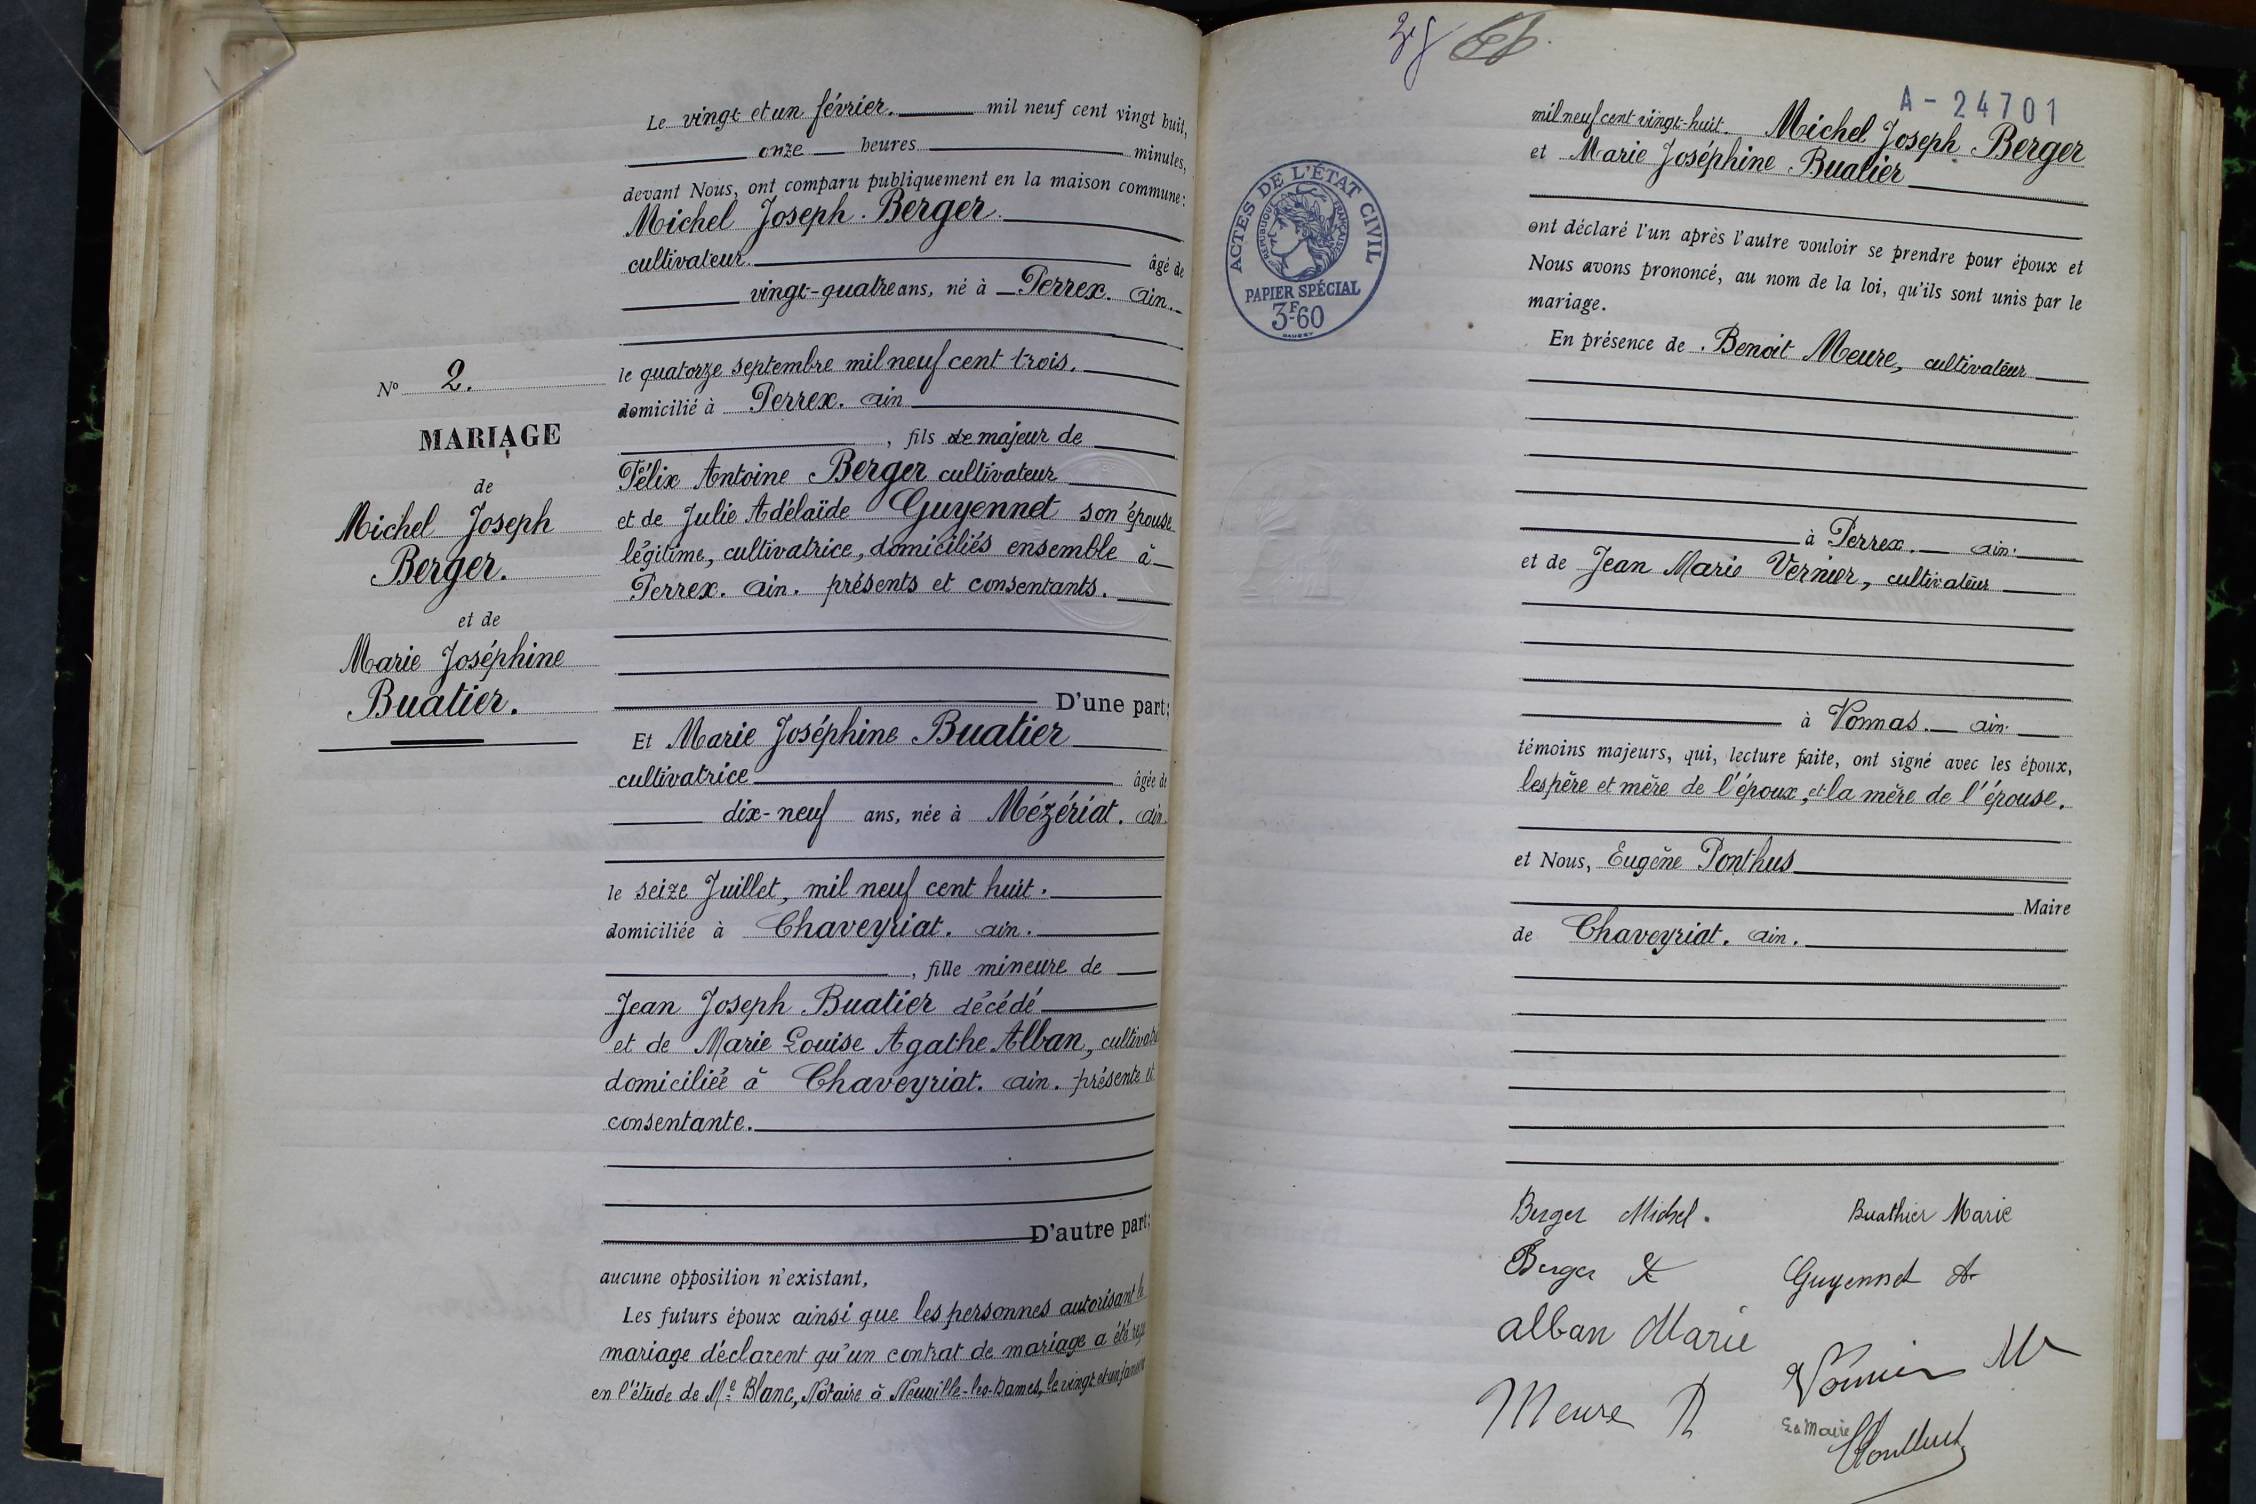 Le vingt et un février. mil neuf cent vingt huit,
onze heures minutes,
devant Nous, ont comparu publiquement en la maison commune:
Michel Joseph Berger.
cultivateur. âgé de
vingt-quatre ans, né à Perrex. Ain.
le quatorze septembre mil neuf cent trois.
domicilié à Perrex. Ain
, fils de majeur de
Félix Antoine Berger cultivateur
et de Julie Adélaïde Guyennet son épouse
légitime, cultivatrice, domiciliés ensemble à
Perrex. Ain. présents et consentants.
D'une part;
N° 2.
MARIAGE
de
Michel Joseph
Berger.
et de
Marie Joséphine
Buatier.
Et Marie Joséphine Buatier
cultivatrice âgée de
dix-neuf ans, née à Mézériat. Ain.
le seize Juillet, mil neuf cent huit.
domiciliée à Chaveyriat. Ain.
, fille mineure de
Jean Joseph Buatier décédé
et de Marie Louise Agathe Alban,
domiciliée à Chaveyriat. Ain. présente et
consentante.
D'autre part;
aucune opposition n'existant,
Les futurs époux ainsi que les personnes autorisant le
mariage déclarent qu'un contrat de mariage a été
en l'étude de Me Blanc, Notaire à Neuville-les-Dames, le vingt et un janvier
A-24701
mil neuf cent vingt-huit. Michel Joseph Berger
et Marie Joséphine Buatier
ACTES DE L'ÉTAT CIVIL
RÉPUBLIQUE FRANÇAISE
PAPIER SPÉCIAL
3F60
ont déclaré l'un après l'autre vouloir se prendre pour époux et
Nous avons prononcé, au nom de la loi, qu'ils sont unis par le
mariage.
En présence de Benoit Meure, cultivateur
à Perrex. Ain.
et de Jean Marie Vernier, cultivateur
à Vonnas. Ain.
témoins majeurs, qui, lecture faite, ont signé avec les époux,
les père et mère de l'époux, et la mère de l'épouse.
et Nous, Eugène Ponthus
Maire
de Chaveyriat. Ain.
Berger Michel. Buathier Marie
Berger Guyennet A
alban Marie
Meure
Le Maire